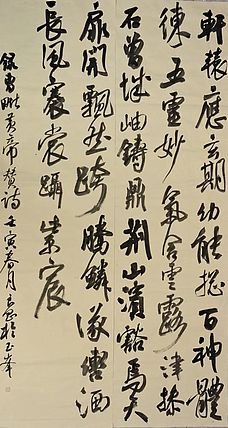 軒轅應玄期幼能揔百神體
練五靈妙氣含雲露津摻
石曾城岫鑄鼎荊山濱豁焉天
扉開飄然跨騰鱗遂轡洒
長風褰裳躡紫宸
錄曹毗黃帝贊詩壬寅春月於玉峯